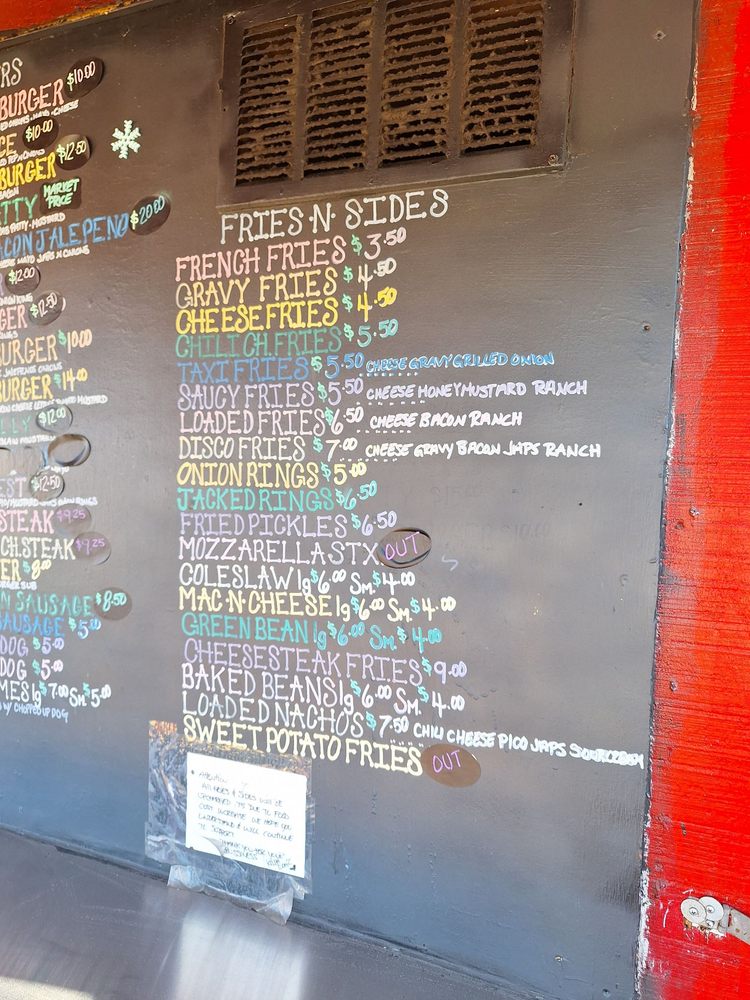 RS
BURGER $10.00
CE $10.00
BURGER $12.50
BACON
TTY MARKET PRICE
BIG PATTY-MUSTARD
ACON JALEPENO $20.00
$12.00
GER $12.50
BURGER $10.00
BURGER $14.00
LLY $12.00
EST $12.50
STEAK $9.25
CH.STEAK $9.25
ER $8.00
BURGER SUB
N SAUSAGE $8.50
SAUSAGE $5.00
DOG $5.00
DOG $5.00
MES lg $7.00 Sm. $5.00
W/ CHOPPED UP DOG
FRIES N. SIDES
FRENCH FRIES $3.50
GRAVY FRIES $4.50
CHEESE FRIES $4.50
CHILI CH. FRIES $5.50
TAXI FRIES $5.50 CHEESE GRAVY GRILLED ONION
SAUCY FRIES $5.50 CHEESE HONEY MUSTARD RANCH
LOADED FRIES $6.50 CHEESE BACON RANCH
DISCO FRIES $7.00 CHEESE GRAVY BACON JAPS RANCH
ONION RINGS $5.00
JACKED RINGS $6.50
FRIED PICKLES $6.50
MOZZARELLA STX OUT
COLESLAW lg $6.00 Sm. $4.00
MAC-N-CHEESE lg $6.00 Sm. $4.00
GREEN BEAN lg $6.00 Sm. $4.00
CHEESESTEAK FRIES $9.00
BAKED BEANS lg $6.00 Sm. $4.00
LOADED NACHOS $7.50 CHILI CHEESE PICO JAPS SOURCREAM
SWEET POTATO FRIES OUT
ATTENTION
ALL FRIES & SIDES WILL BE
DUE TO FOOD
COST INCREASE. WE HOPE YOU
UNDERSTAND & WILL CONTINUE
TO SUPPORT
THANK YOU FOR YOUR
BUSINESS